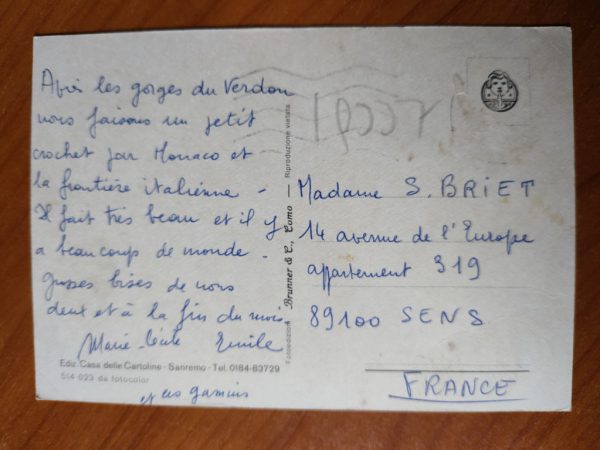 Après les gorges du Verdon
nous faisons un petit
crochet par Monaco et
la frontière italienne -
Il fait très beau et il y
a beaucoup de monde -
grosses bises de nous
deux et à la fin du mois.
Marie-Cécile Emile
et ces gamins
Ediz. Casa delle Cartoline - Sanremo - Tel. 0184-83729
514-023 da fotocolor
Fotoedizioni Brunner & C., Como — Riproduzione vietata
Madame S. BRIET
14 avenue de l'Europe
appartement 319
89100 SENS
FRANCE